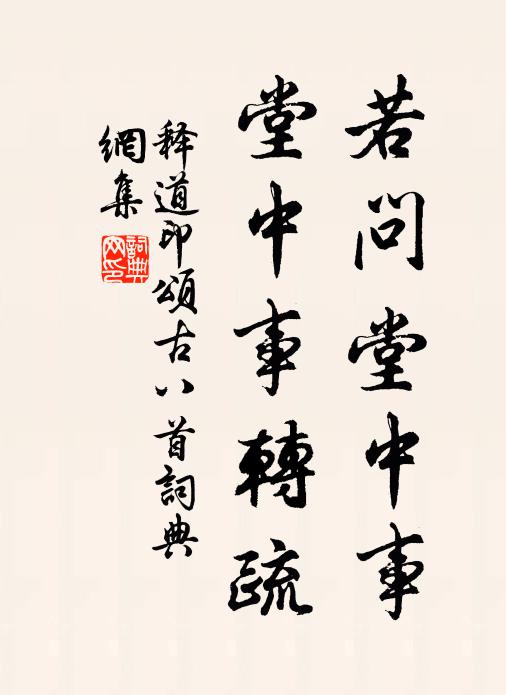 若問堂中事
堂中事轉疏
释道印頌古八首詞典
網集
詞典
网印